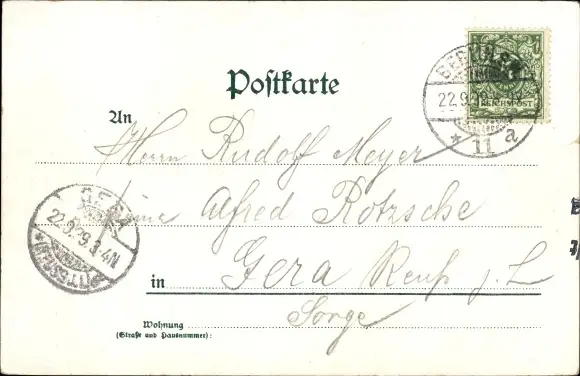 Postkarte
BERLIN
22.9.99
* 11 a
REICHSPOST
An
Herrn Rudolf Meyer
GERA
22.9.99.3-4N
Firma Alfred Rotzsche
in Gera Reuß j. L
Sorge
Wohnung
(Straße und Hausnummer):